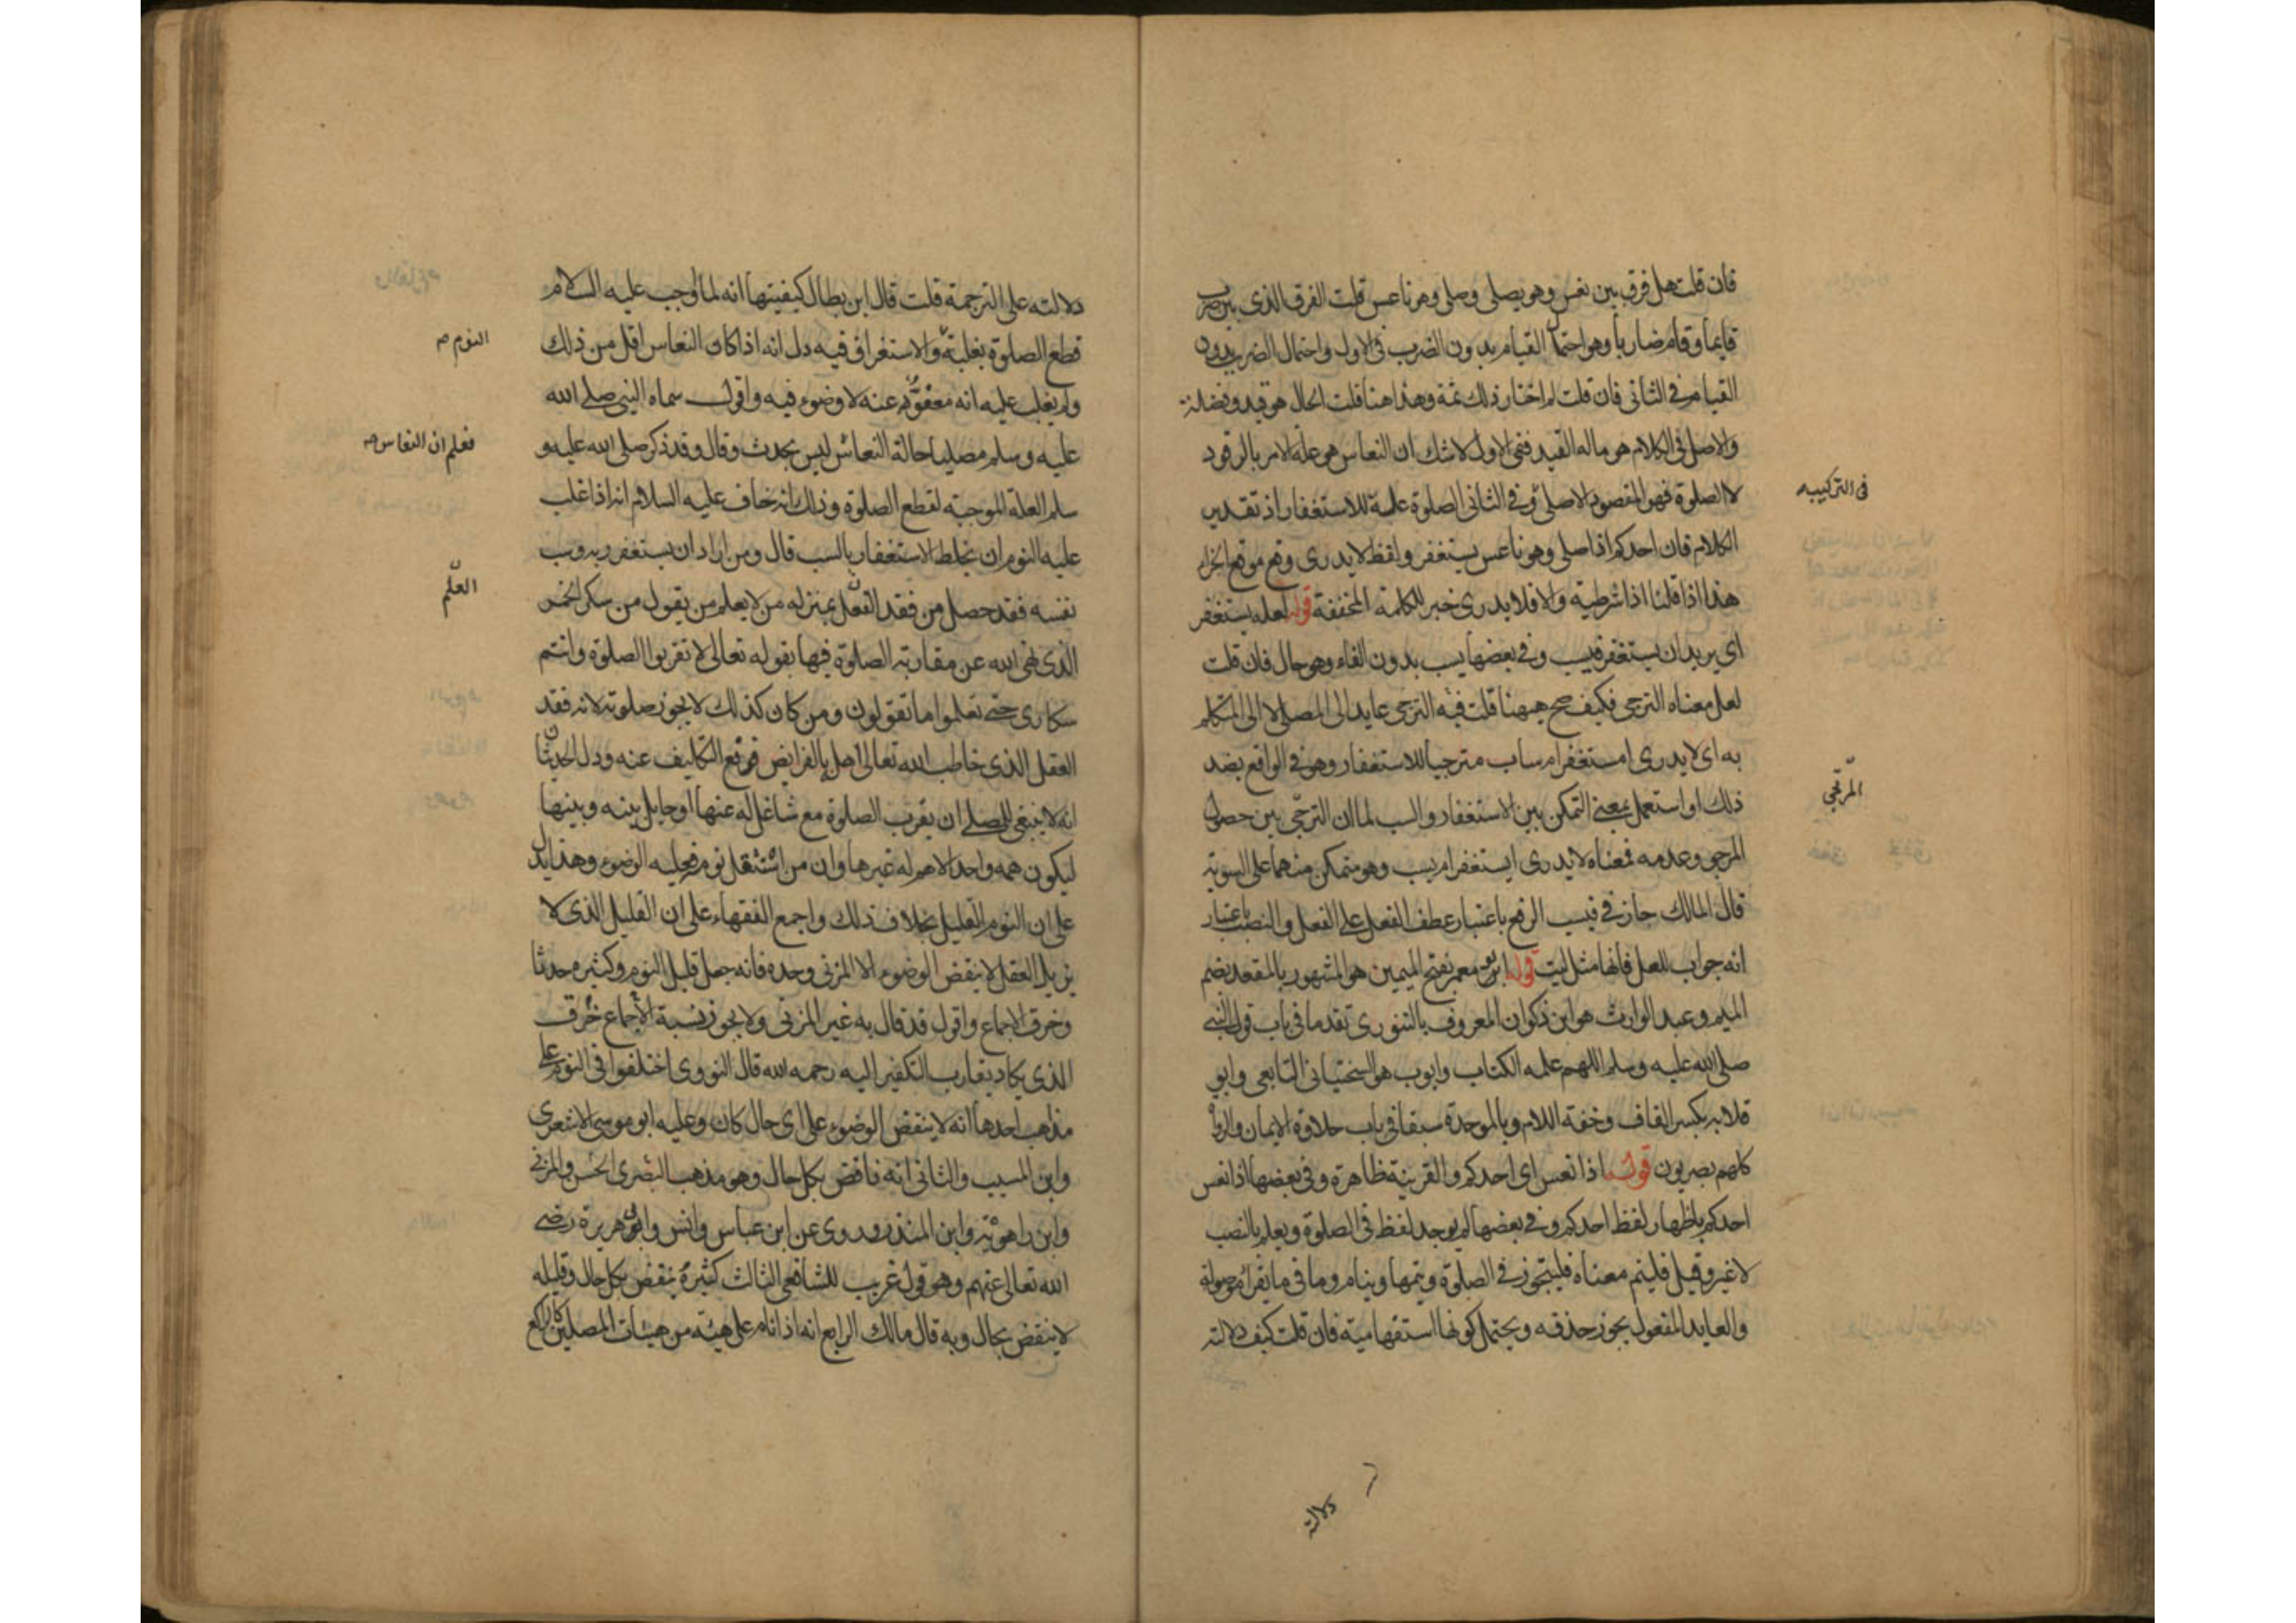 فان قلت هل فرق بين نعس وهو يصلي وصلى وهو ناعس قلت الفرق الذي بين ضرب
قايما وقام ضاربا وهو احتمال القيام بدون الضرب في الاول واحتمال الضرب بدون
القيام في الثاني فان قلت لم اختار ذلك ثمة وهذا هنا قلت الحال هو قيد وفضلة
والاصل في الكلام هو ماله القيد ففي الاول لا شك ان النعاس هو علة الامر بالرقود
لا الصلوة فهو المقصود الاصلي وفي الثاني الصلوة علة للاستغفار اذ تقدير
في التركيب
الكلام فان احدكم اذا صلى وهو ناعس يستغفر ولفظ لا يدري وقع موقع الجزاء
هذا اذا قلنا اذا شرطية والا فلا يدري خبر للكلمة المخففة قوله لعله يستغفر
اي يريد ان يستغفر فيسب وفي بعضها يسب بدون الفاء وهو حال فان قلت
لعل معناه الترجي فكيف صح ههنا قلت فيه الترجي عايد الى المصلي لا الى المتكلم
به اي لا يدري امستغفر ام ساب مترجيا للاستغفار وهو في الواقع بضد
ذلك او استعمل بمعنى التمكن بين الاستغفار والسب لما ان الترجي بين حصول
المرجو وعدمه فمعناه لا يدري ايستغفر ام يسب وهو متمكن منهما على السوية
قال المالك جاز في فيسب الرفع باعتبار عطف الفعل على الفعل والنصب باعتبار
انه جواب للعل فانها مثل ليت قوله ابو معمر بفتح الميمين هو المشهور بالمقعد بضم
الميم وعبد الوارث هو ابن ذكوان المعروف بالتنوري تقدما في باب قول النبي
صلى الله عليه وسلم اللهم علمه الكتاب وايوب هو السختياني التابعي وابو
قلابة بكسر القاف وخفة اللام وبالموحدة سبقا في باب حلاوة الايمان والرواة
كلهم بصريون قوله اذا نعس اي احدكم والقرينة ظاهرة وفي بعضها اذا نعس
احدكم باظهار لفظ احدكم وفي بعضها لم يوجد لفظ في الصلوة ويعلم بالنصب
لا غير وقيل فلينم معناه فليتجوز في الصلوة ويتمها وينام وما في ما يقرأ موصولة
والعايد المفعول يجوز حذفه ويحتمل كونها استفهامية فان قلت كيف دلالته
دلالته
دلالته على الترجمة قلت قال ابن بطال كيفيتها انه لما اوجب عليه السلام
قطع الصلوة بغلبة والاستغراق فيه دل انه اذا كان النعاس اقل من ذلك
النوم صح
ولم يغلب عليه انه معفو عنه لا وضوء فيه واقول سماه النبي صلى الله
عليه وسلم مصليا حالة النعاس ليس بحدث وقال وقد ذكر صلى الله عليه و
فعلم ان النعاس صح
سلم العلة الموجبة لقطع الصلوة وذلك انه خاف عليه السلام انه اذا غلب
عليه النوم ان يخلط الاستغفار بالسب قال ومن اراد ان يستغفر ربه وسب
نفسه فقد حصل من فقد العقل بمنزلة من لا يعلم من يقول من سكر الخمر
الذي نهى الله عن مقاربة الصلوة فيها بقوله تعالى لا تقربوا الصلوة وانتم
سكارى حتى تعلموا ما تقولون ومن كان كذلك لا يجوز صلوته لانه فقد
العقل الذي خاطب الله تعالى اهله بالفرايض فرفع التكليف عنه ودل الحديثان
انه لا ينبغي للمصلي ان يقرب الصلوة مع شاغل له عنها او حايل بينه وبينها
ليكون همه واحدا لا هم له غيرها وان من استثقل نومه فعليه الوضوء وهذا يدل
على ان النوم القليل بخلاف ذلك واجمع الفقهاء على ان القليل الذي لا
يزيل العقل لا ينقض الوضوء الا المزني وحده فانه جعل قليل النوم وكثيره حدثا
وخرق الاجماع واقول قد قال به غير المزني ولا يجوز نسبة الاجماع خرق
الذي يكاد يقارب التكفير اليه رحمه الله قال النووي اختلفوا في النوم على
مذاهب احدها انه لا ينقض الوضوء على اي حال كان وعليه ابو موسى الاشعري
وابن المسيب والثاني انه ناقض بكل حال وهو مذهب البصري الحسن والمزني
وابن راهويه وابن المنذر وروي عن ابن عباس وانس وابي هريرة رضي
الله تعالى عنهم وهو قول غريب للشافعي الثالث كثيره ينقض بكل حال وقليله
لا ينقض بحال وبه قال مالك الرابع انه اذا نام على هيئة من هيئات المصلين كالراكع